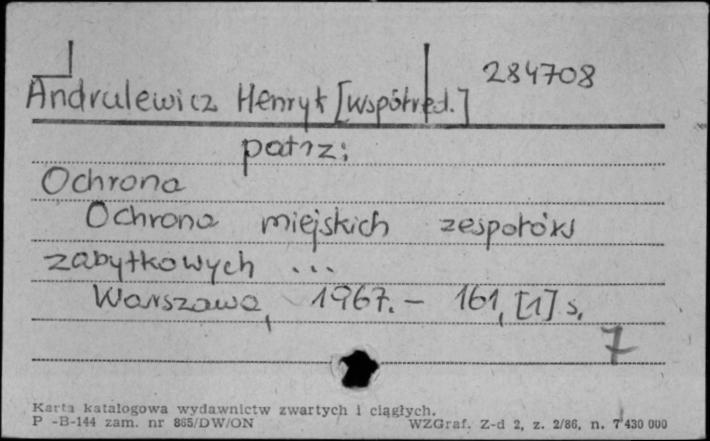 284708
Andrulewicz Henryk [współred.]
patrz:
Ochrona
Ochrona miejskich zespołów
zabytkowych ...
Warszawa, 1967. - 161, [1] s.
7
Karta katalogowa wydawnictw zwartych i ciągłych.
P -B-144 zam. nr 865/DW/ON WZGraf. Z-d 2, z. 2/86, n. 7 430 000